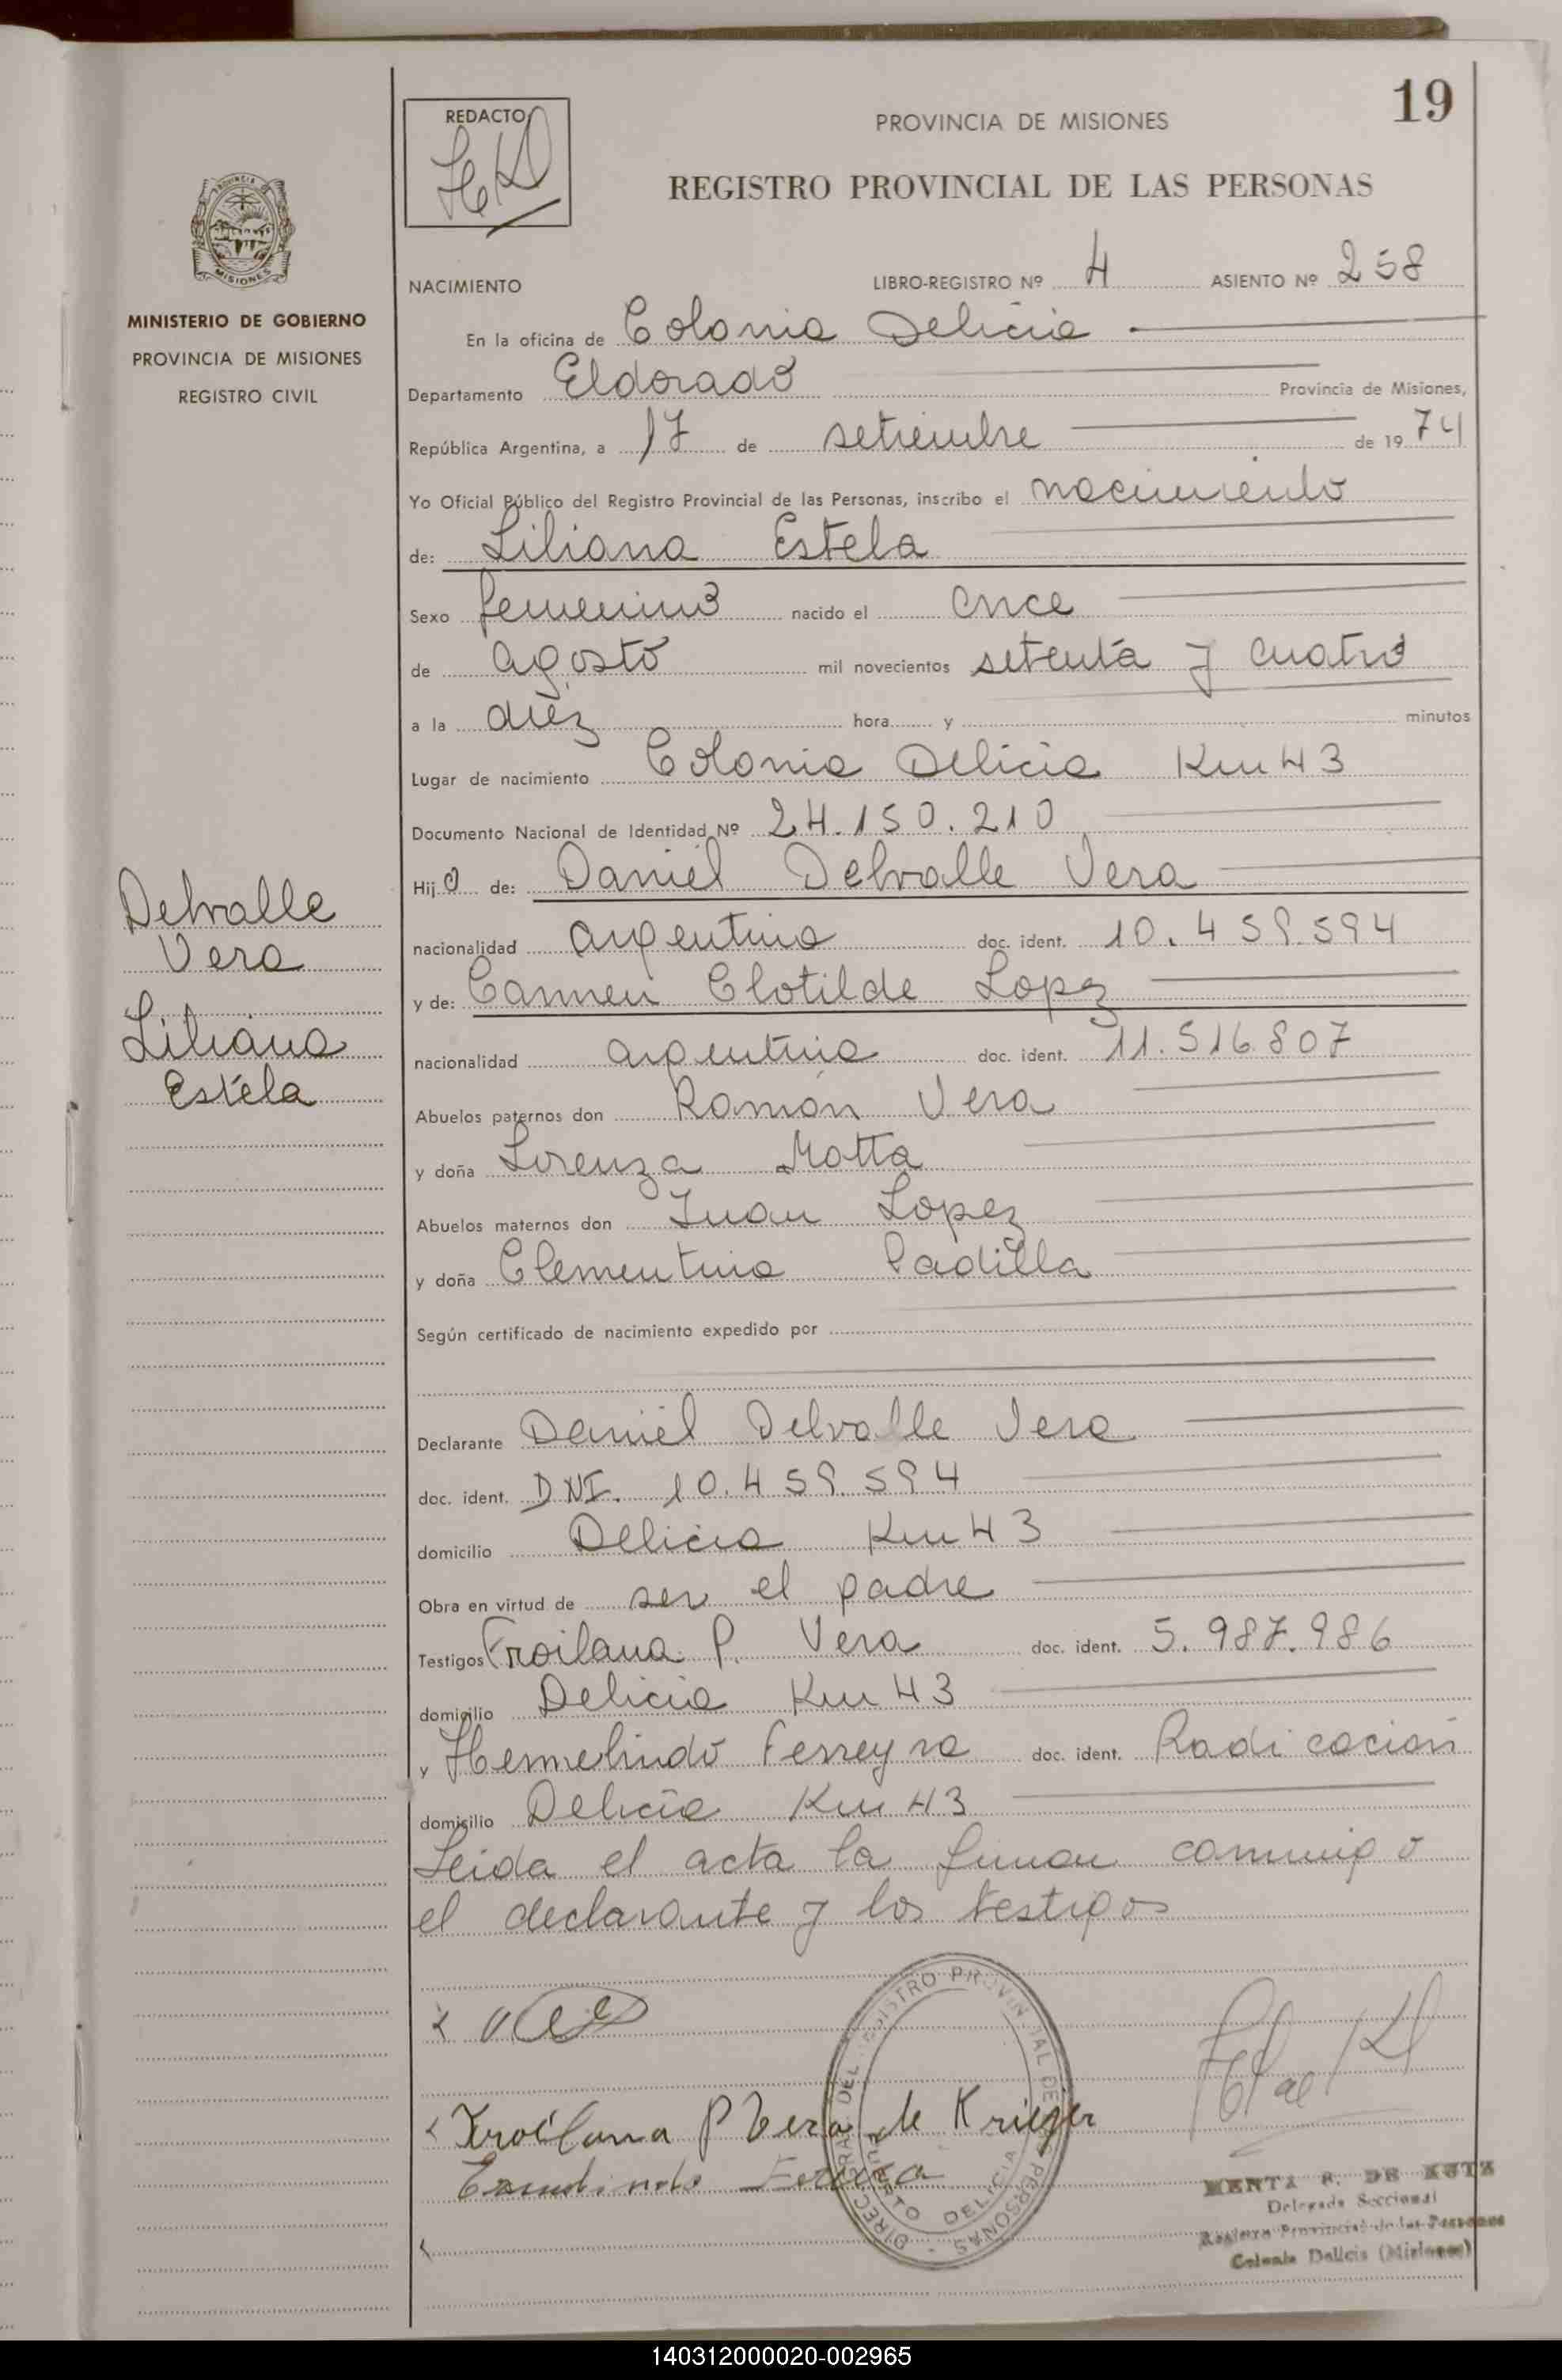 19
REDACTO
PROVINCIA DE MISIONES
REGISTRO PROVINCIAL DE LAS PERSONAS
MISIONES
MINISTERIO DE GOBIERNO
PROVINCIA DE MISIONES
REGISTRO CIVIL
NACIMIENTO LIBRO-REGISTRO Nº 4 ASIENTO Nº 258
En la oficina de Colonia Delicia
Departamento Eldorado Provincia de Misiones,
República Argentina, a 17 de setiembre de 1974
Yo Oficial Público del Registro Provincial de las Personas, inscribo el nacimiento
de: Liliana Estela
Sexo femenino nacido el once
de agosto mil novecientos setenta y cuatro
a la diez hora y minutos
Lugar de nacimiento Colonia Delicia Km 43
Documento Nacional de Identidad Nº 24.150.210
Hija de: Daniel Delvalle Vera
nacionalidad argentina doc. ident. 10.459.594
y de: Carmen Clotilde Lopez
nacionalidad argentina doc. ident. 11.516.807
Abuelos paternos don Ramón Vera
y doña Lorenza Motta
Abuelos maternos don Juan Lopez
y doña Clementina Padilla
Según certificado de nacimiento expedido por
Declarante Daniel Delvalle Vera
doc. ident. DNI. 10.459.594
domicilio Delicia Km 43
Obra en virtud de ser el padre
Testigos Froilana P. Vera doc. ident. 5.987.986
domicilio Delicia Km 43
y Hermelindo Ferreyra doc. ident. Radicación
domicilio Delicia Km 43
Leida el acta la firman conmigo
el declarante y los testigos
Delvalle
Vera
Liliana
Estela
Froilana P Vera de Krieger
DIRECC GRAL DEL REGISTRO PROVINCIAL DE LAS PERSONAS
PUERTO DELICIA
DE KUTZ
Delegada Seccional
Registro Provincial de las Personas
Colonia Delicia (Misiones)
140312000020-002965